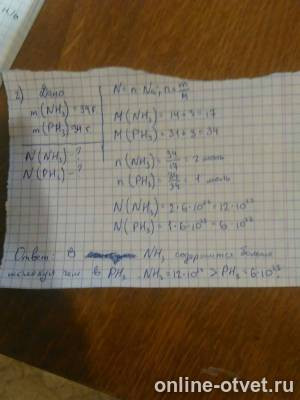 2) Дано
m(NH₃)=34г
m(PH₃)=34г
N(NH₃)-?
N(PH₃)-?
N=n·Na, n=m/M
M(NH₃)=14+3=17
M(PH₃)=31+3=34
n(NH₃)=34/17=2 моль
n(PH₃)=34/34=1 моль
N(NH₃)=2·6·10²³=12·10²³
N(PH₃)=1·6·10²³=6·10²³
Ответ: В NH₃ содержится больше
молекул чем в PH₃. NH₃=12·10²³>PH₃=6·10²³
online-otvet.ru